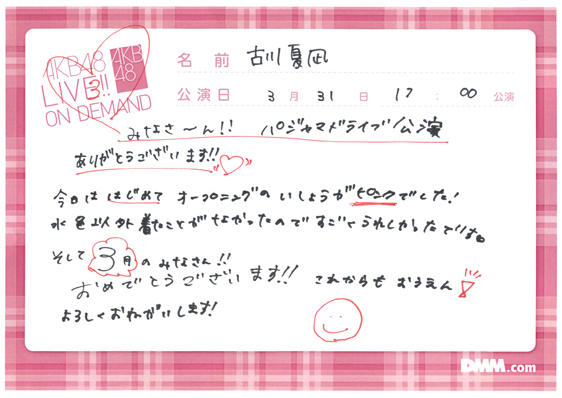 AKB48
LIVE!!
ON DEMAND
AKB
48
名前 古川夏凪
公演日 3月31日 17:00 公演
みなさ〜ん!! パジャマドライブ公演
ありがとうございます!!
今日ははじめてオープニングのいしょうがピンクでした!
水色以外着たことがなかったのですごくうれしかったです。
そして3月のみなさん!!
おめでとうございます!! これからもおうえん
よろしくおねがいします!
DMM.com